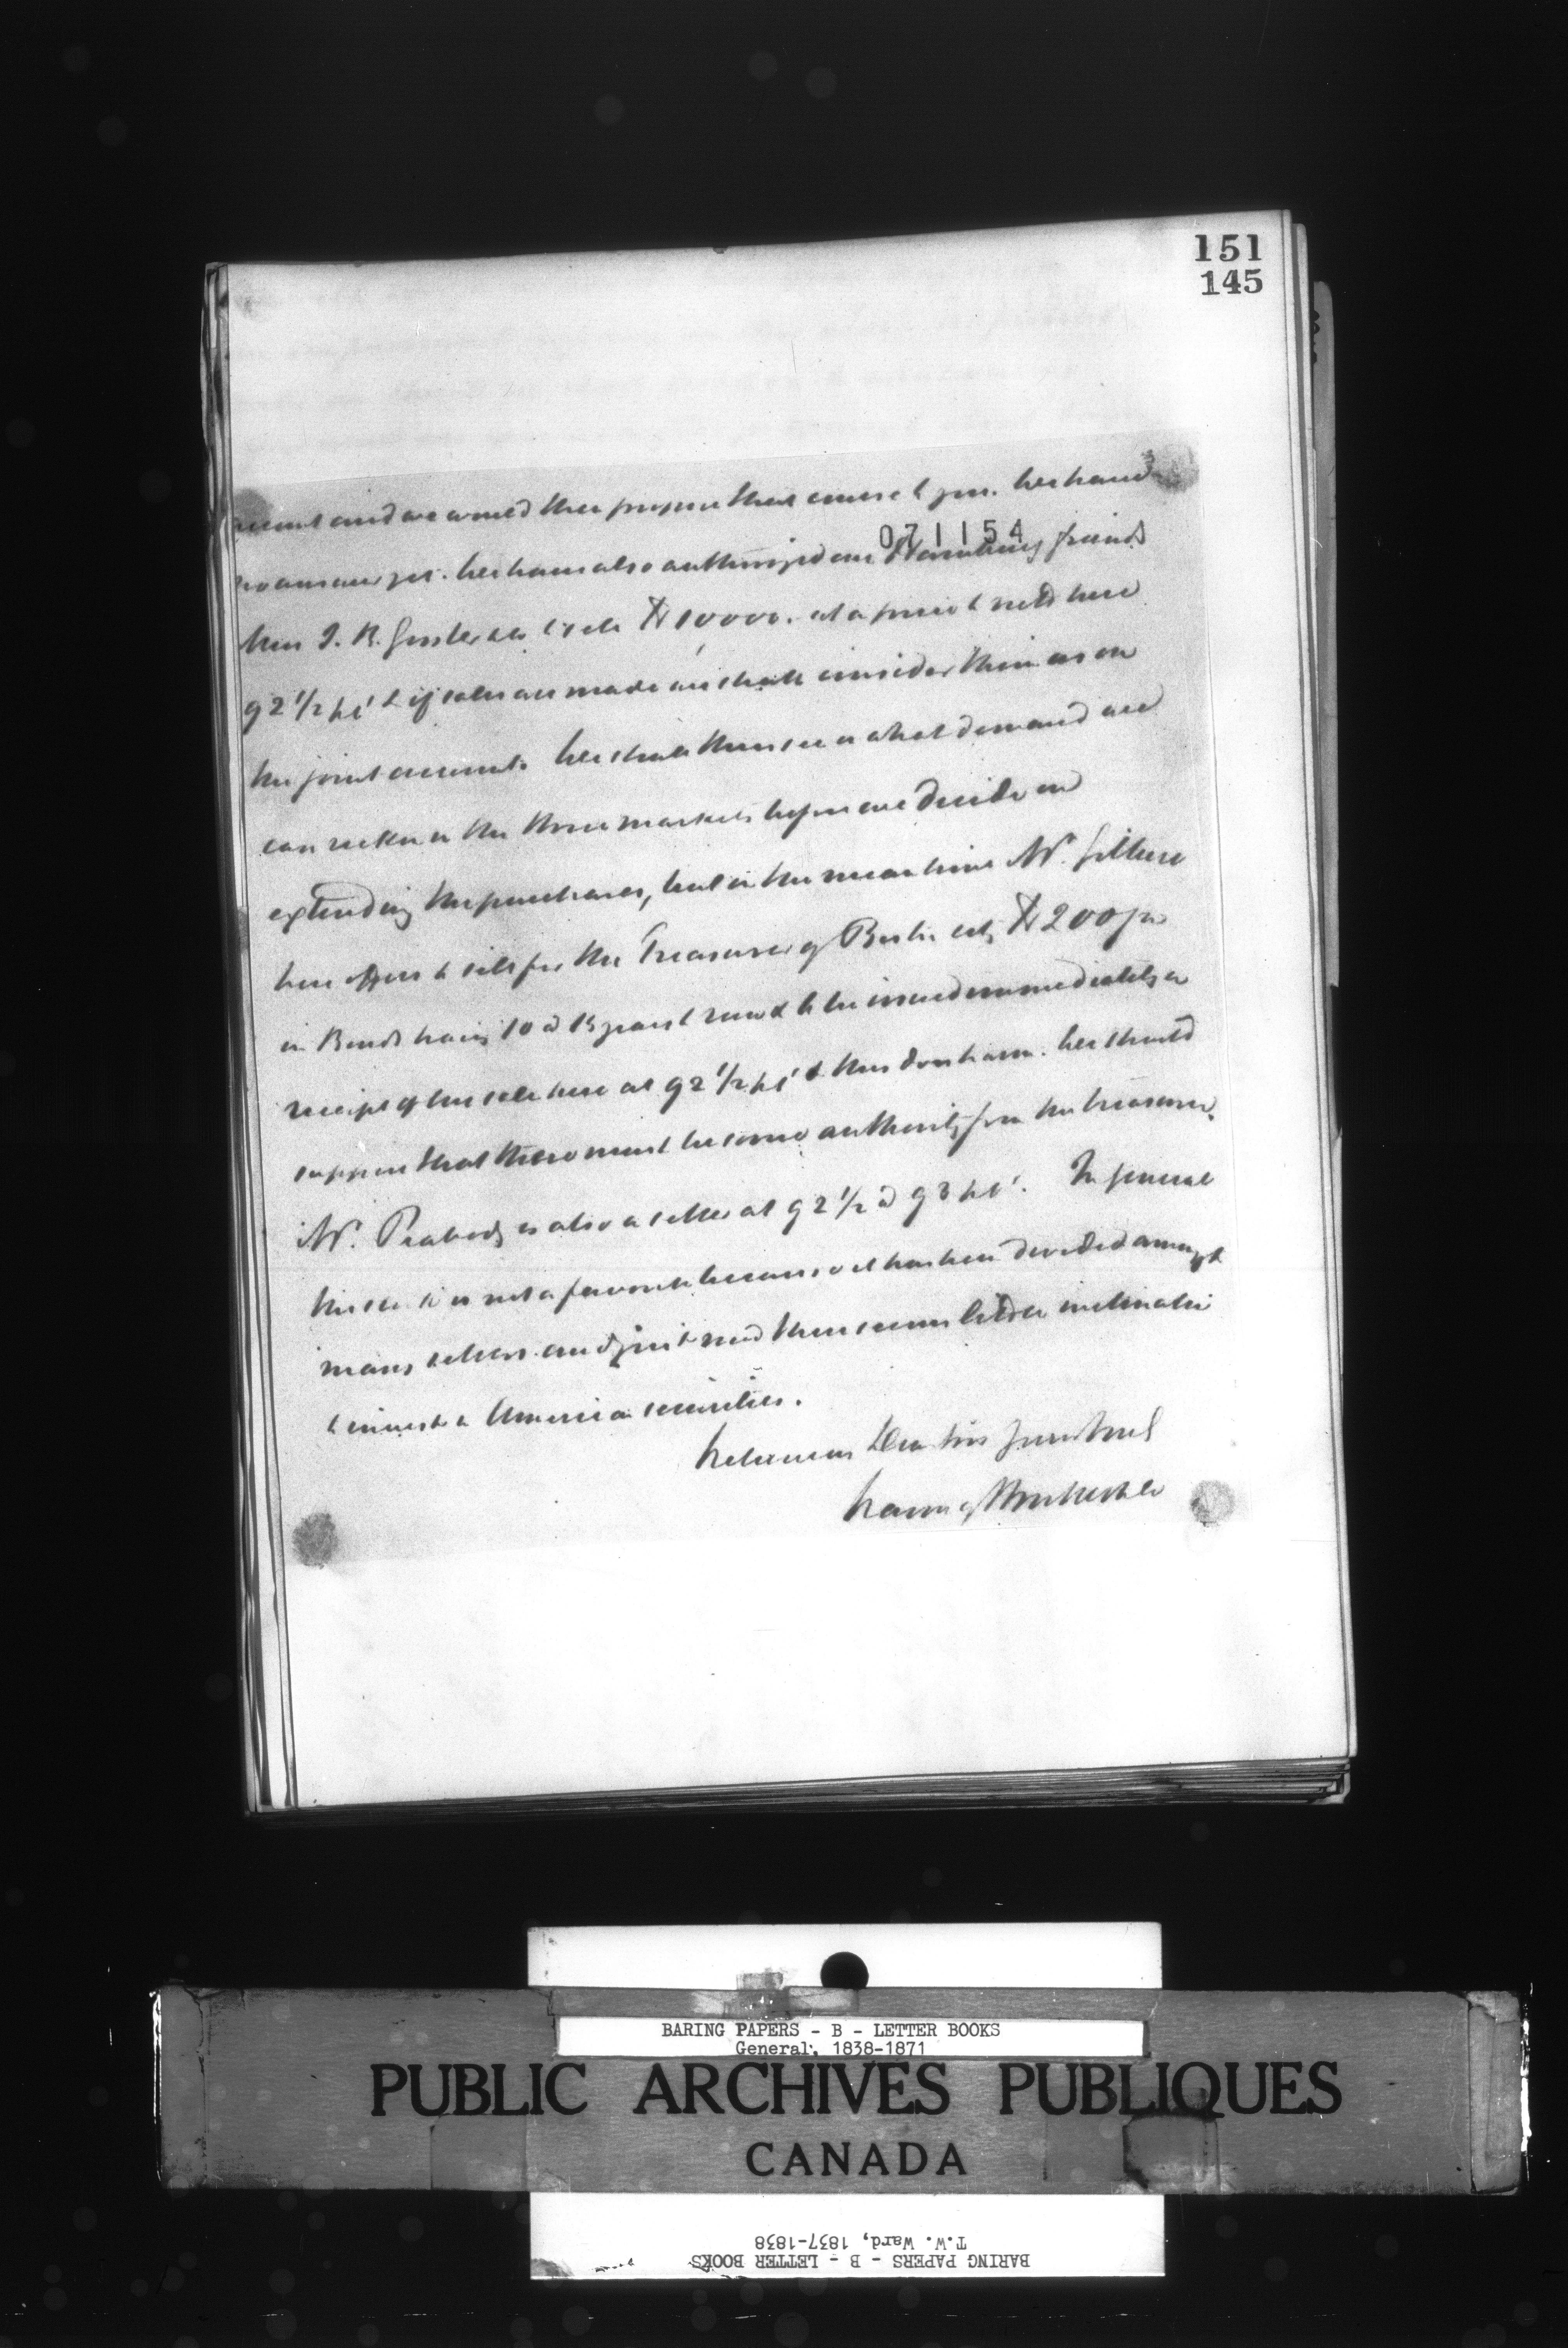 151
145
account and we would then propose that course to you. We have
no answer yet. We have also authorized our Hamburg friends
071154
Mess J. H. & to sell 10000. at a price to nett here
92 1/2 pct & if sales are made we shall consider them as on
the joint account. We shall then see what demand we
can reckon in the three markets before we decide on
extending the purchases, but in the mean time Mr. Gilliat
here offers to sell for the Treasurer of Berlin 200
in Bonds having 10 a 15 years to run & to be issued immediately on
receipt of the sale here at 92 1/2 pct & this does harm. We should
suppose that there must be some authority from the treasurer.
Mr. Peabody is also a seller at 92 1/2 a 93 pct. In general
this is not a favorite because it has been divided amongst
many sellers and just now there seems little inclination
to invest in American securities.
We remain Dear Sir
Baring Brothers & Co
BARING PAPERS - B - LETTER BOOKS
General, 1838-1871
PUBLIC ARCHIVES PUBLIQUES
CANADA
BARING PAPERS - B - LETTER BOOKS
T.W. Ward, 1837-1838